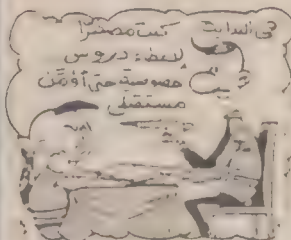 فى البداية كنت مضطرًا
لإعطاء دروس
خصوصية حتى أؤمّن
مستقبلى